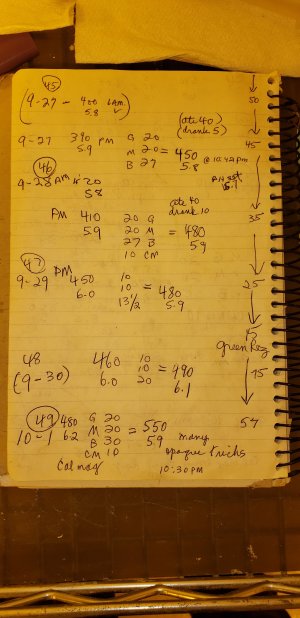 45
(9-27 - 400 6AM)
5.8 ✓
50
(ate 40)
(drank 5)
9-27 390 PM G 20
5.9 M 20 = 450 @ 10:42 PM
B 27 5.8
45
46
9-28 AM 420
5.8
ate 40
drank 10
35
PM 410 20 G
5.9 20 M = 480
27 B 5.9
10 CM
47
9-29 PM 450 10
6.0 10 = 480
13 1/2 5.9
25
green Keg
48 460 10
(9-30) 10 = 490
6.0 20 6.1
15
49 480 G 20
10-1 6.2 M 20 = 550
B 30 59 many
CM 10 opaque trichs
Cal mag 10:30 PM
57